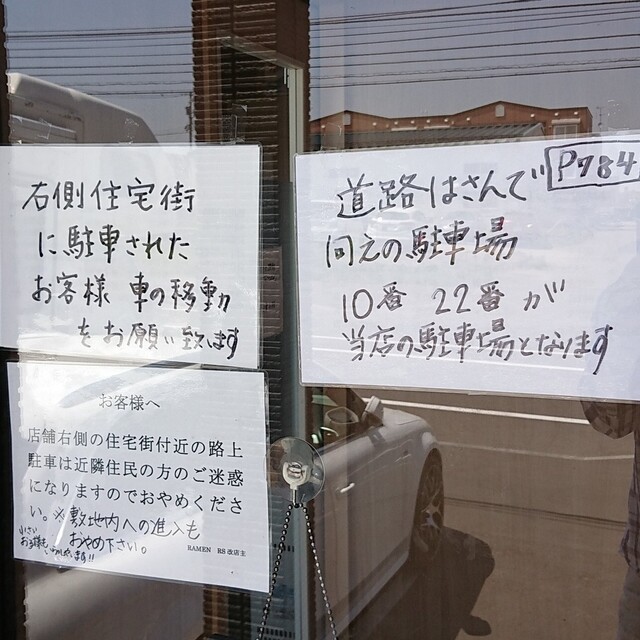 右側住宅街
に駐車された
お客様 車の移動
をお願い致します
道路はさんで P784
向えの駐車場
10番 22番が
当店の駐車場となります
お客様へ
店舗右側の住宅街付近の路上
駐車は近隣住民の方のご迷惑
になりますのでおやめくださ
い。※敷地内への進入も
おやめ下さい。
小さい
お子様もいらっしゃいます!!
RAMEN RS改店主